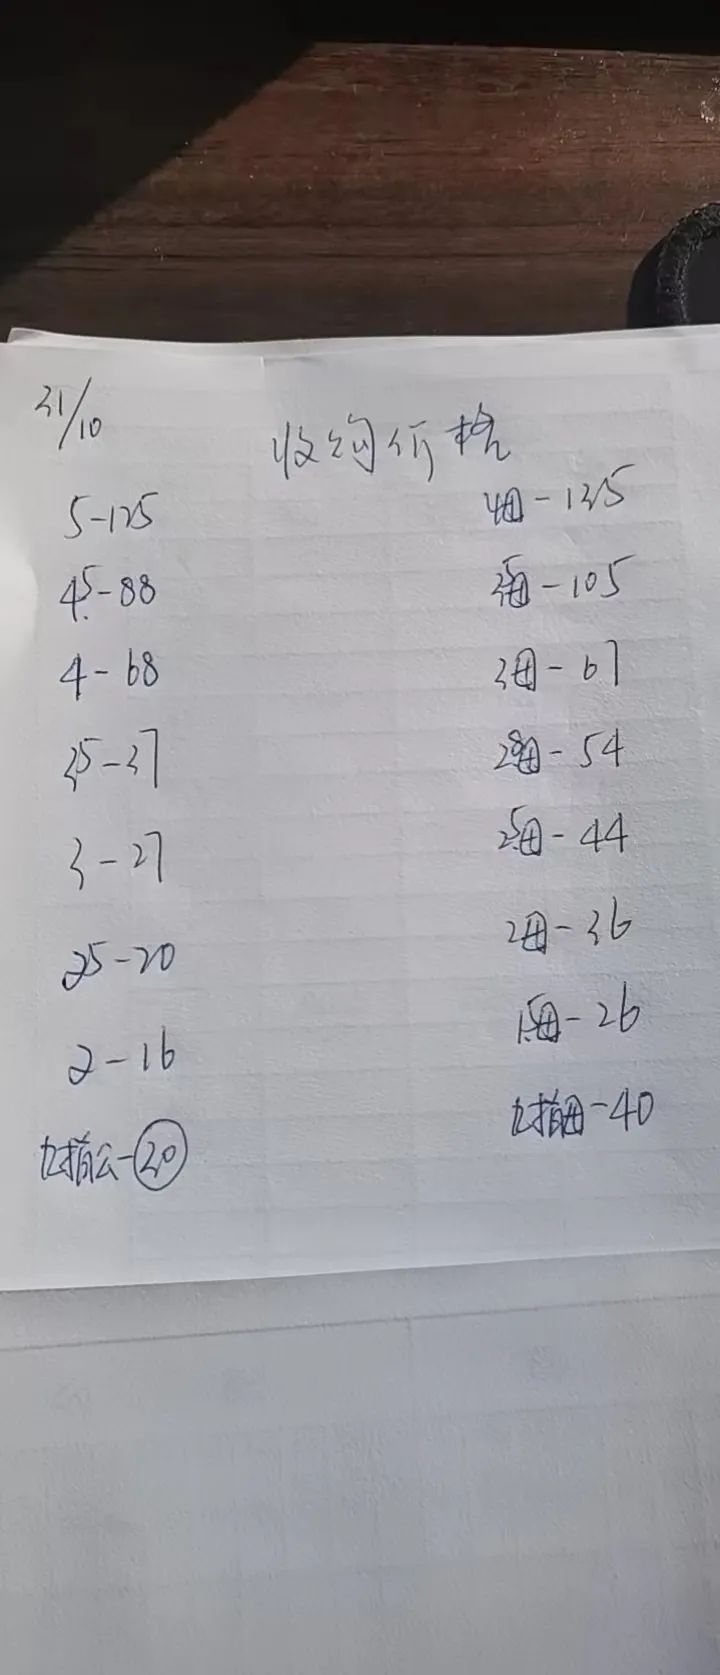 31/10
收购价格
5-125
4母-135
4.5-88
3.5母-105
4-68
3母-67
3.5-37
2.8母-54
3-27
2.5母-44
2.5-20
2母-36
2-16
1.5母-26
母-40
公-20